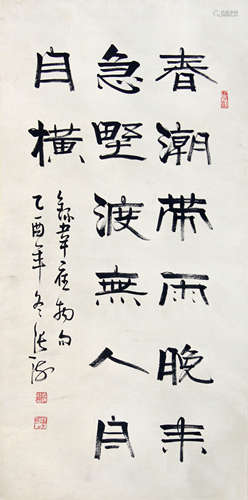 春潮帶雨晚来
急野渡無人舟
自橫
錄韋應物句
乙酉年冬